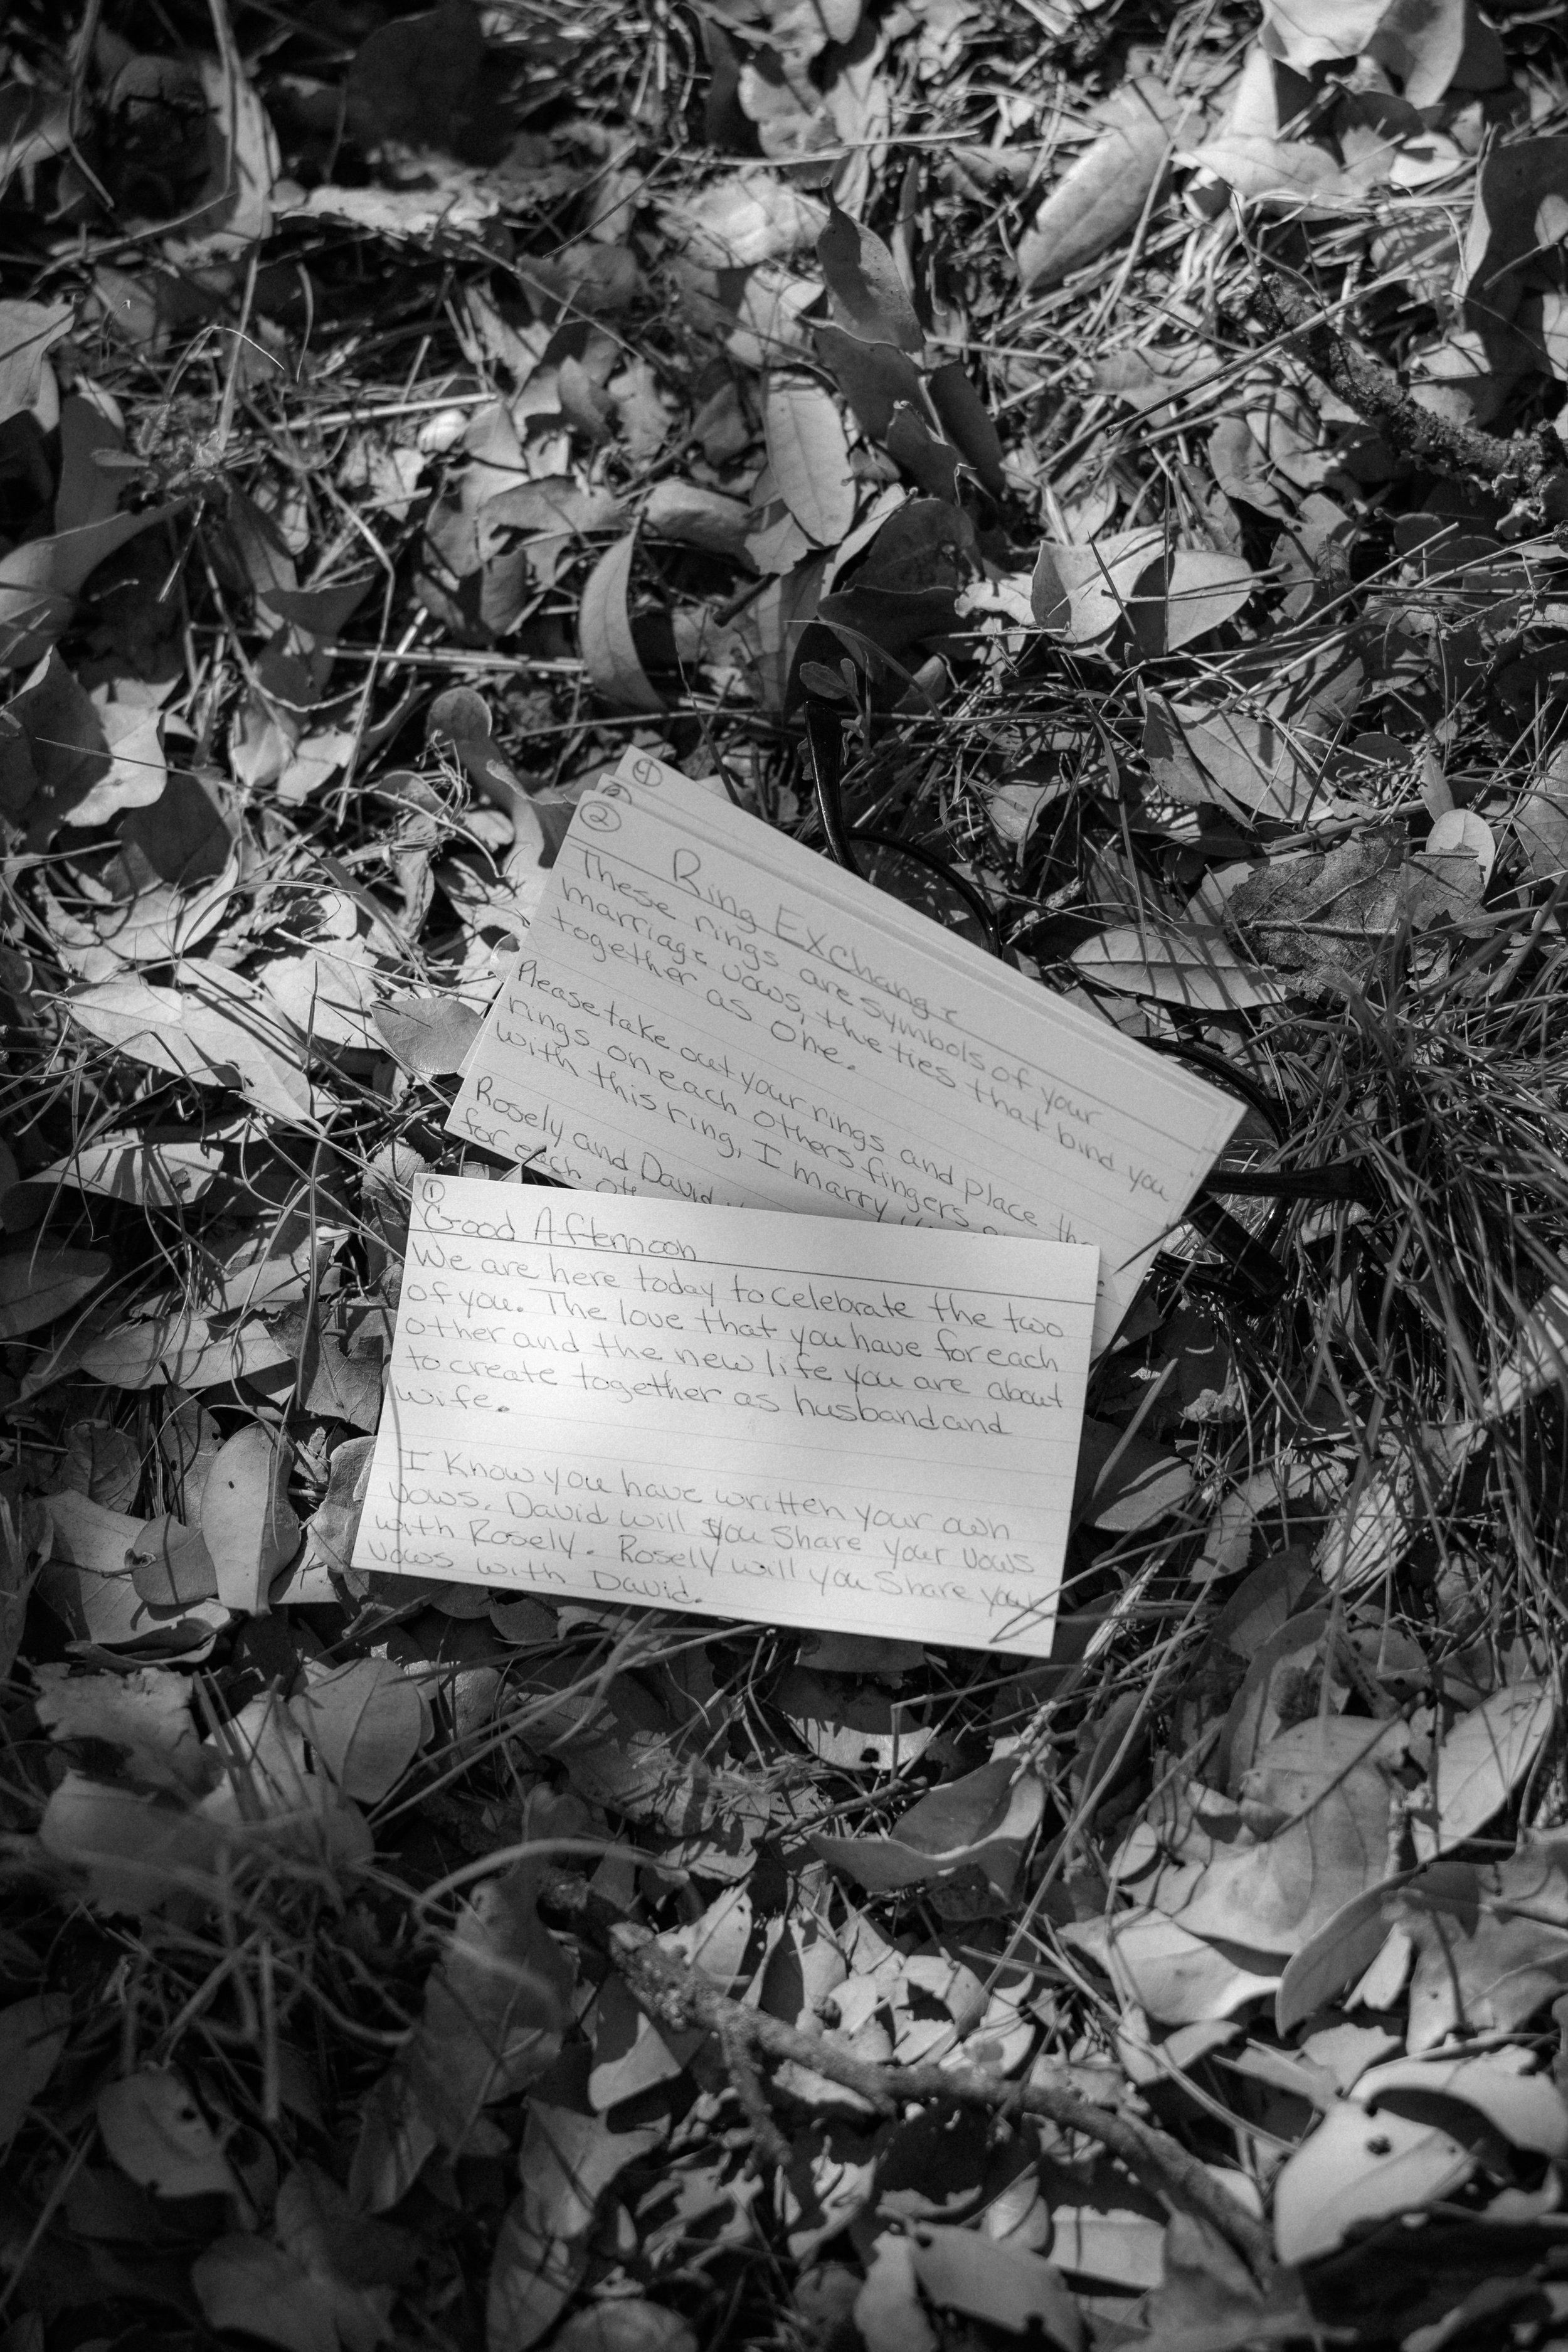 ④
③
②
Ring Exchange
These rings are symbols of your
marriage vows, the ties that bind you
together as One.
Please take out your rings and place the
rings on each others fingers
with this ring, I marry
Rosely and David
for each
①
Good Afternoon
We are here today to celebrate the two
of you. The love that you have for each
other and the new life you are about
to create together as husband and
wife.
I Know you have written your own
vows. David will you Share your vows
with Rosely. Rosely will you Share your
vows with David.